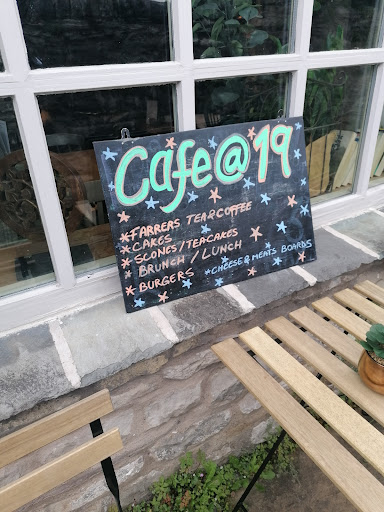 Cafe@19
*FARRERS TEA&COFFEE
*CAKES
*SCONES/TEACAKES
*BRUNCH/LUNCH
*BURGERS *CHEESE&MEATS BOARDS